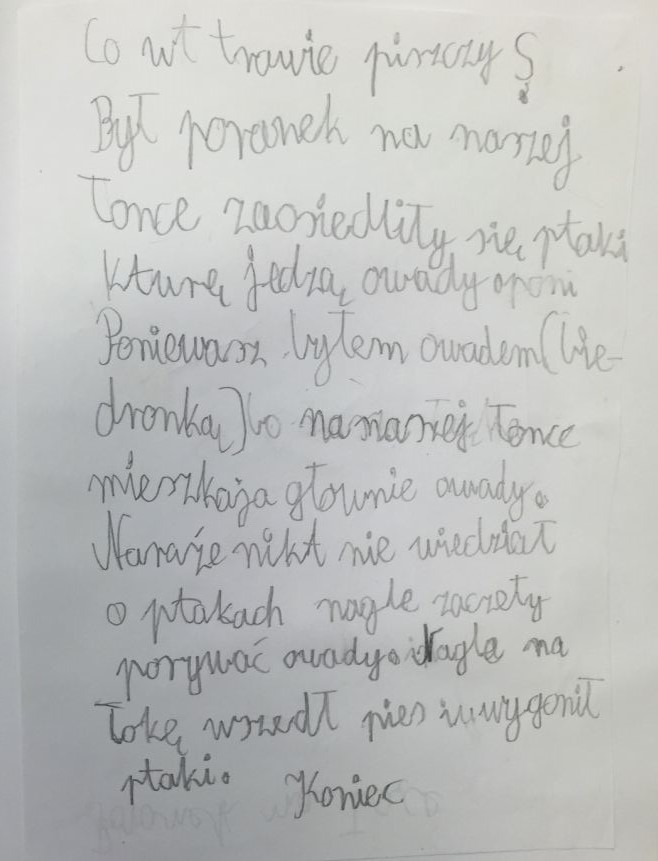 Co wt trawie piszczy?
Był poranek na naszej
łonce zaosiedliły się ptaki
kturę jedzą owady oponi
Poniewasz byłem owadem (bie-
dronką) bo na naszej łonce
mieszkaja głownie owady.
Naraźe nikt nie wiedział
o ptakach nagle zaczeły
porywać owady. Nagle na
łokę wszedł pies i wygonił
ptaki. Koniec